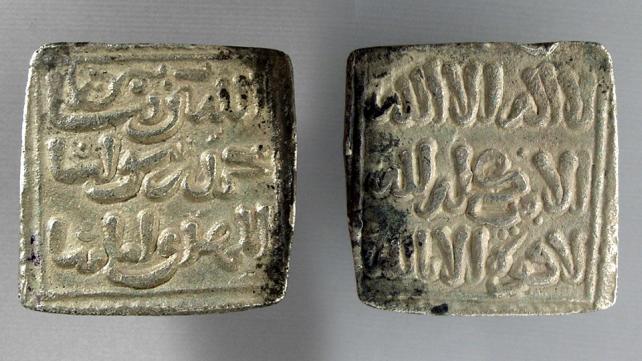 الله ربنا
محمد رسولنا
المهدي امامنا
لا اله الا الله
الامر كله لله
لا قوة الا بالله